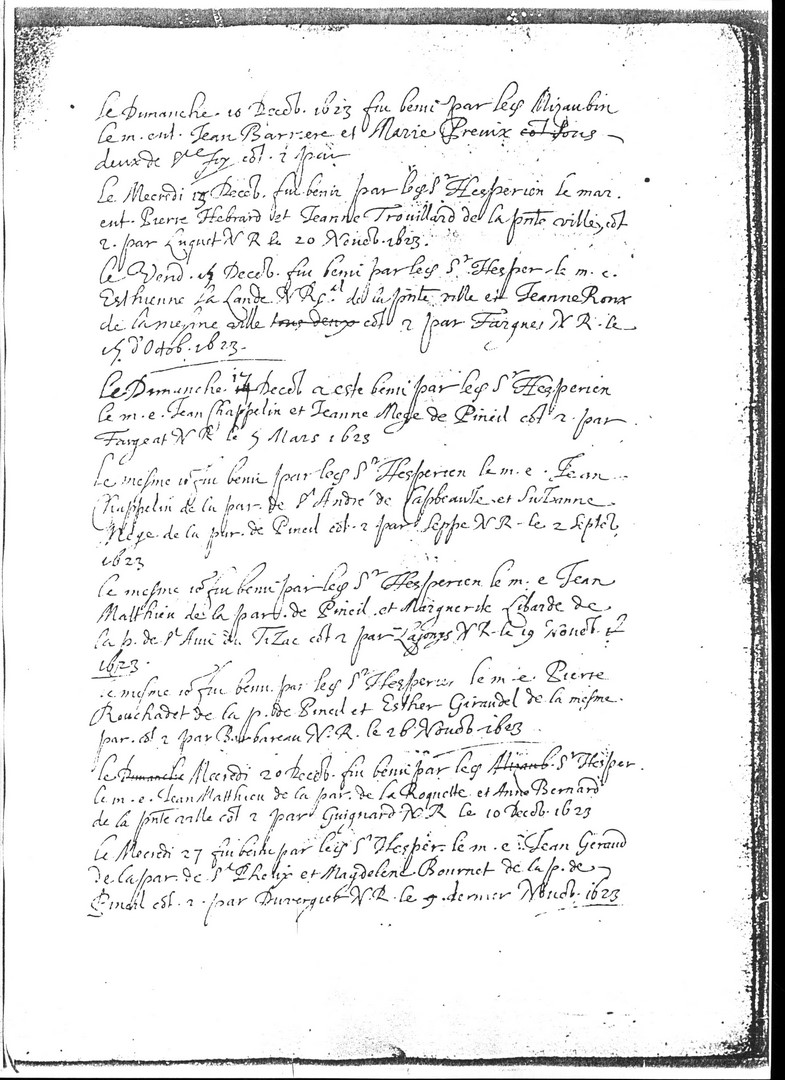 Le Dimanche. 10 Deceb. 1623 fut beni par le Sr Mizaubin
le m. ent. Jean Barrere et Marie Preux
deux de Ste Foy cot. 2 par
Le Mecredi 13 Deceb. fut beni par le Sr Hesperien le mar.
ent. Pierre Hebrard et Jeanne Trouillard de la pnte ville, cot
2. par Luquet N R le 20 Noueb. 1623.
le Vend. 15 Deceb. fut beni par le Sr Hesper. le m. e.
Esthienne La Lande N R de la pnte ville et Jeanne Roux
de la mesme ville tous deux cot 2 par Fargues N R. le
15 d'Octob. 1623.
Le Dimanche 17 Deceb a este beni par le Sr Hesperien
le m. e. Jean Chappelin et Jeanne Mege de Pineil cot. 2. par
Fargeat N R le 5 Mars 1623
Le mesme io. fut beni par le Sr Hesperien le m. e. Jean
Chappelin de la par. de St André de Cabbeauze et Suzanne
Mege de la par. de Pineil cot. 2 par Seppe N R. le 2 Septeb.
1623
Le mesme io. fut beni par le Sr Hesperien le m. e Jean
Matthieu de la par. de Pineil et Marguerite Libarde de
la p. de St Avit du Tizac cot 2 par N R. le 19 Noueb.
1623.
Le mesme io. fut beni par le Sr Hesperien le m. e. Pierre
Rouchadet de la p. de Pineil et Esther Giraudel de la mesme
par. cot 2 par Barbareau N. R. le 26 Noueb 1623
le Dimanche Mecredi 20 Deceb. fut beni par le Sr Hesper.
le m. e. Jean Matthieu de la par. de la Roquette et Anne Bernard
de la pnte ville cot 2 par Guignard N R le 10 Deceb. 1623
Le Mecredi 27 fut beni par le Sr Hesper. le m. e. Jean Geraud
de la par. de St Pheix et Magdelene Bournet de la p. de
Pineil cot. 2. par Duverguet N. R. le dernier Noueb. 1623